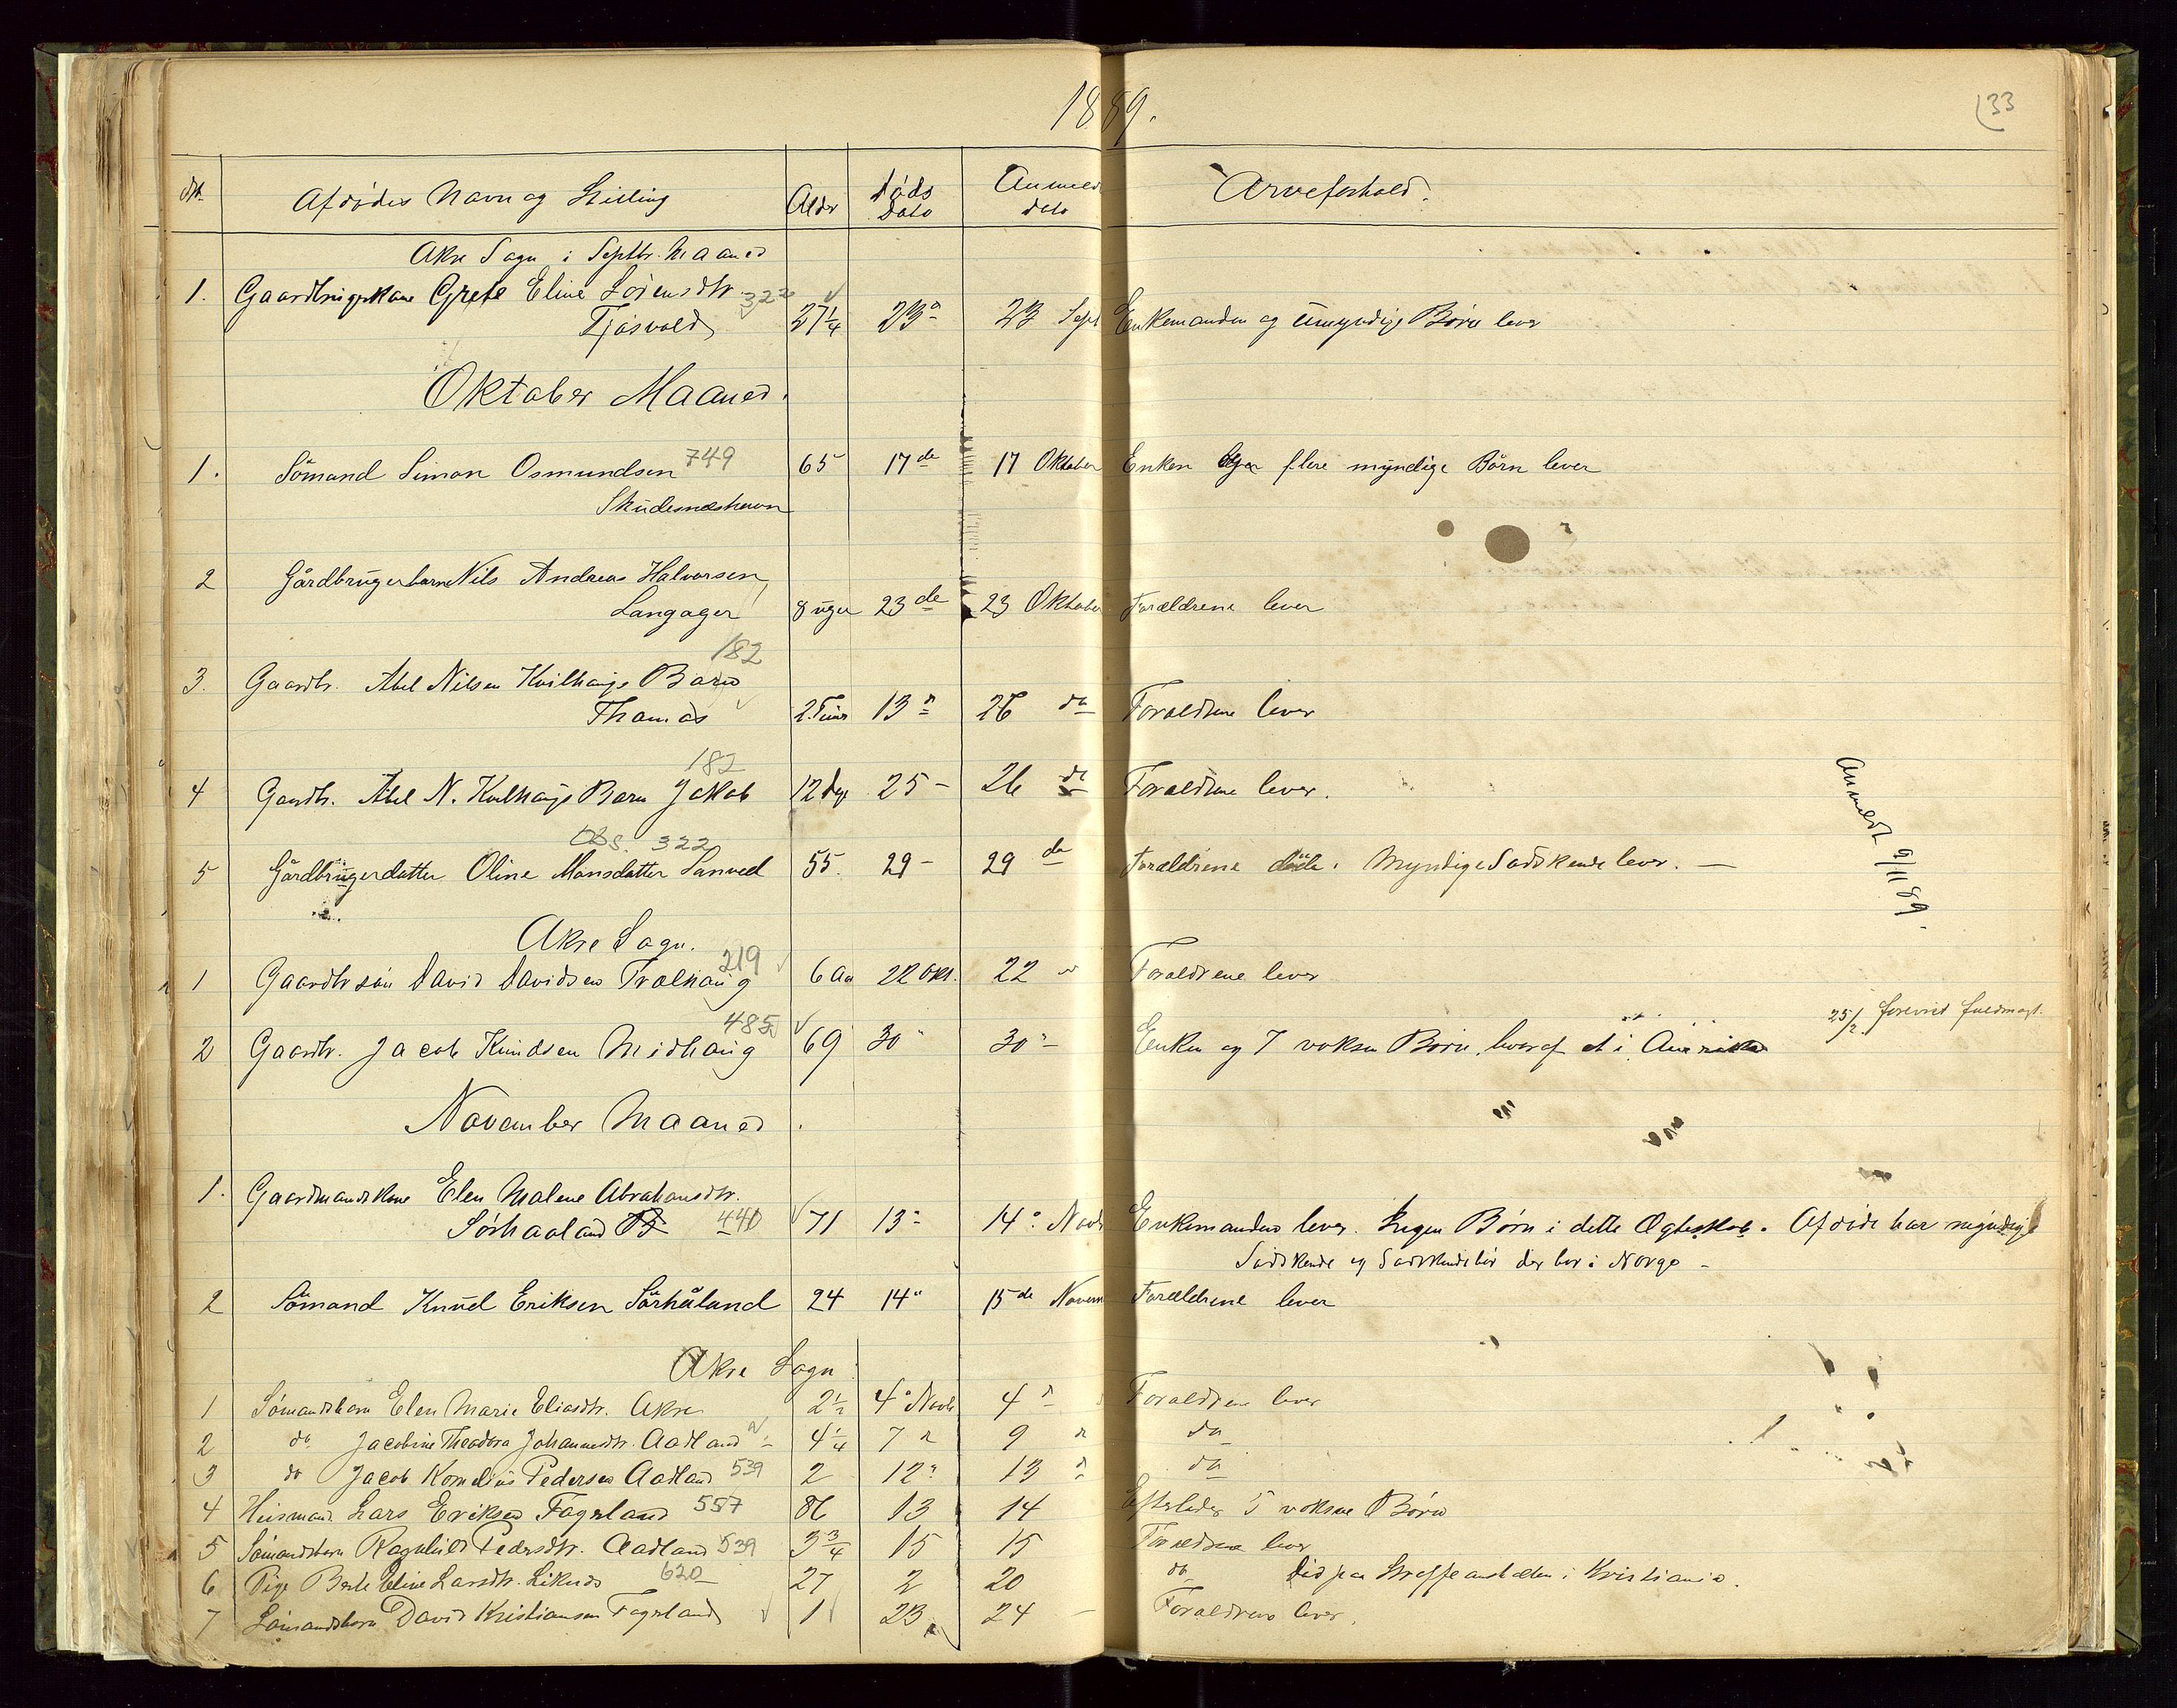 1889.
133
Nr. Afdødes Navn og Stilling Alder Døds Dato Anmeld dato Arveforhold.
Akre Sogn i Septbr. Maaned
1. Gaardbrugerkone Grete Eline Lorensdtr. 322
Tjøsvold 27 1/4 23d 23 Sept Enkemanden og umyndige Børn lever
Oktober Maaned.
1. Sömand Simon Osmundsen 749 65 17de 17 Oktober Enken flere myndige Börn lever
Skudesneshavn
2 Gårdbrugerbarn Nils Andreas Halvorsen,
Langager 8 uger 23de 23 Oktober Forældrene lever
182
3. Gaardbr. Abel Nilsen Kvilhaugs Barn
Thomas 2 Timer 13d 26 do Forældrene lever
182
4 Gaardbr. Abel N. Kvilhaugs Barn Jakob 12 dage 25 - 26 do Forældrene lever.
Obs. 322
5 Gårdbrugerdatter Oline Monsdatter Sanved 55. 29 - 29 do Forældrene döde. Myndige Södskende lever. —
Anmeldt 9/11 89.
Akre Sogn.
219
1 Gaardbr søn David Davidsen Trælhaug 6 Aar 22 Okt. 22 " Forældrene lever
485
2 Gaardbr. Jacob Knudsen Midhaug 69 30 " 30 " Enken og 7 voksne Børn, hvoraf et i Amerika
25/2 forevist fuldmagt.
November Maaned.
1. Gaardmandskone Elen Malene Abrahamsdtr.
Sørhaaland 440 71 13d 14d Novb Enkemanden lever. Ingen Børn i dette Ægteskab. Afdøde har myndige
Sødskende og Sødskendebør der bor i Norge -
2 Sömand Knud Eriksen Sörhåland 24 14 " 15de Novem Forældrene lever
Akre Sogn
1 Sømandsbarn Elen Marie Eliasdtr. Akre 2 1/2 4d Novb 4d Forældrene lever
2 do Jacobine Theodora Johannesdtr. Aadland 4 1/4 7 " 9 " do
3 do Jacob Kornelius Pedersen Aadland 539 2 12 " 13 " do
4 Husmand Lars Eriksen Fagerland 557 86 13 14 Efterlader 5 voksne Børn
5 Sømandsbarn Ragnhild Pedersdtr. Aadland 539 3 3/4 15 15 Forældrene lever
6 Pige Berte Eline Larsdtr. Liknes 620 27 2 20 do Død paa Straffeanstalten i Kristiania.
7 Sømandsbarn David Kristiansen Fagerland 1 23 24 - Forældrene lever.